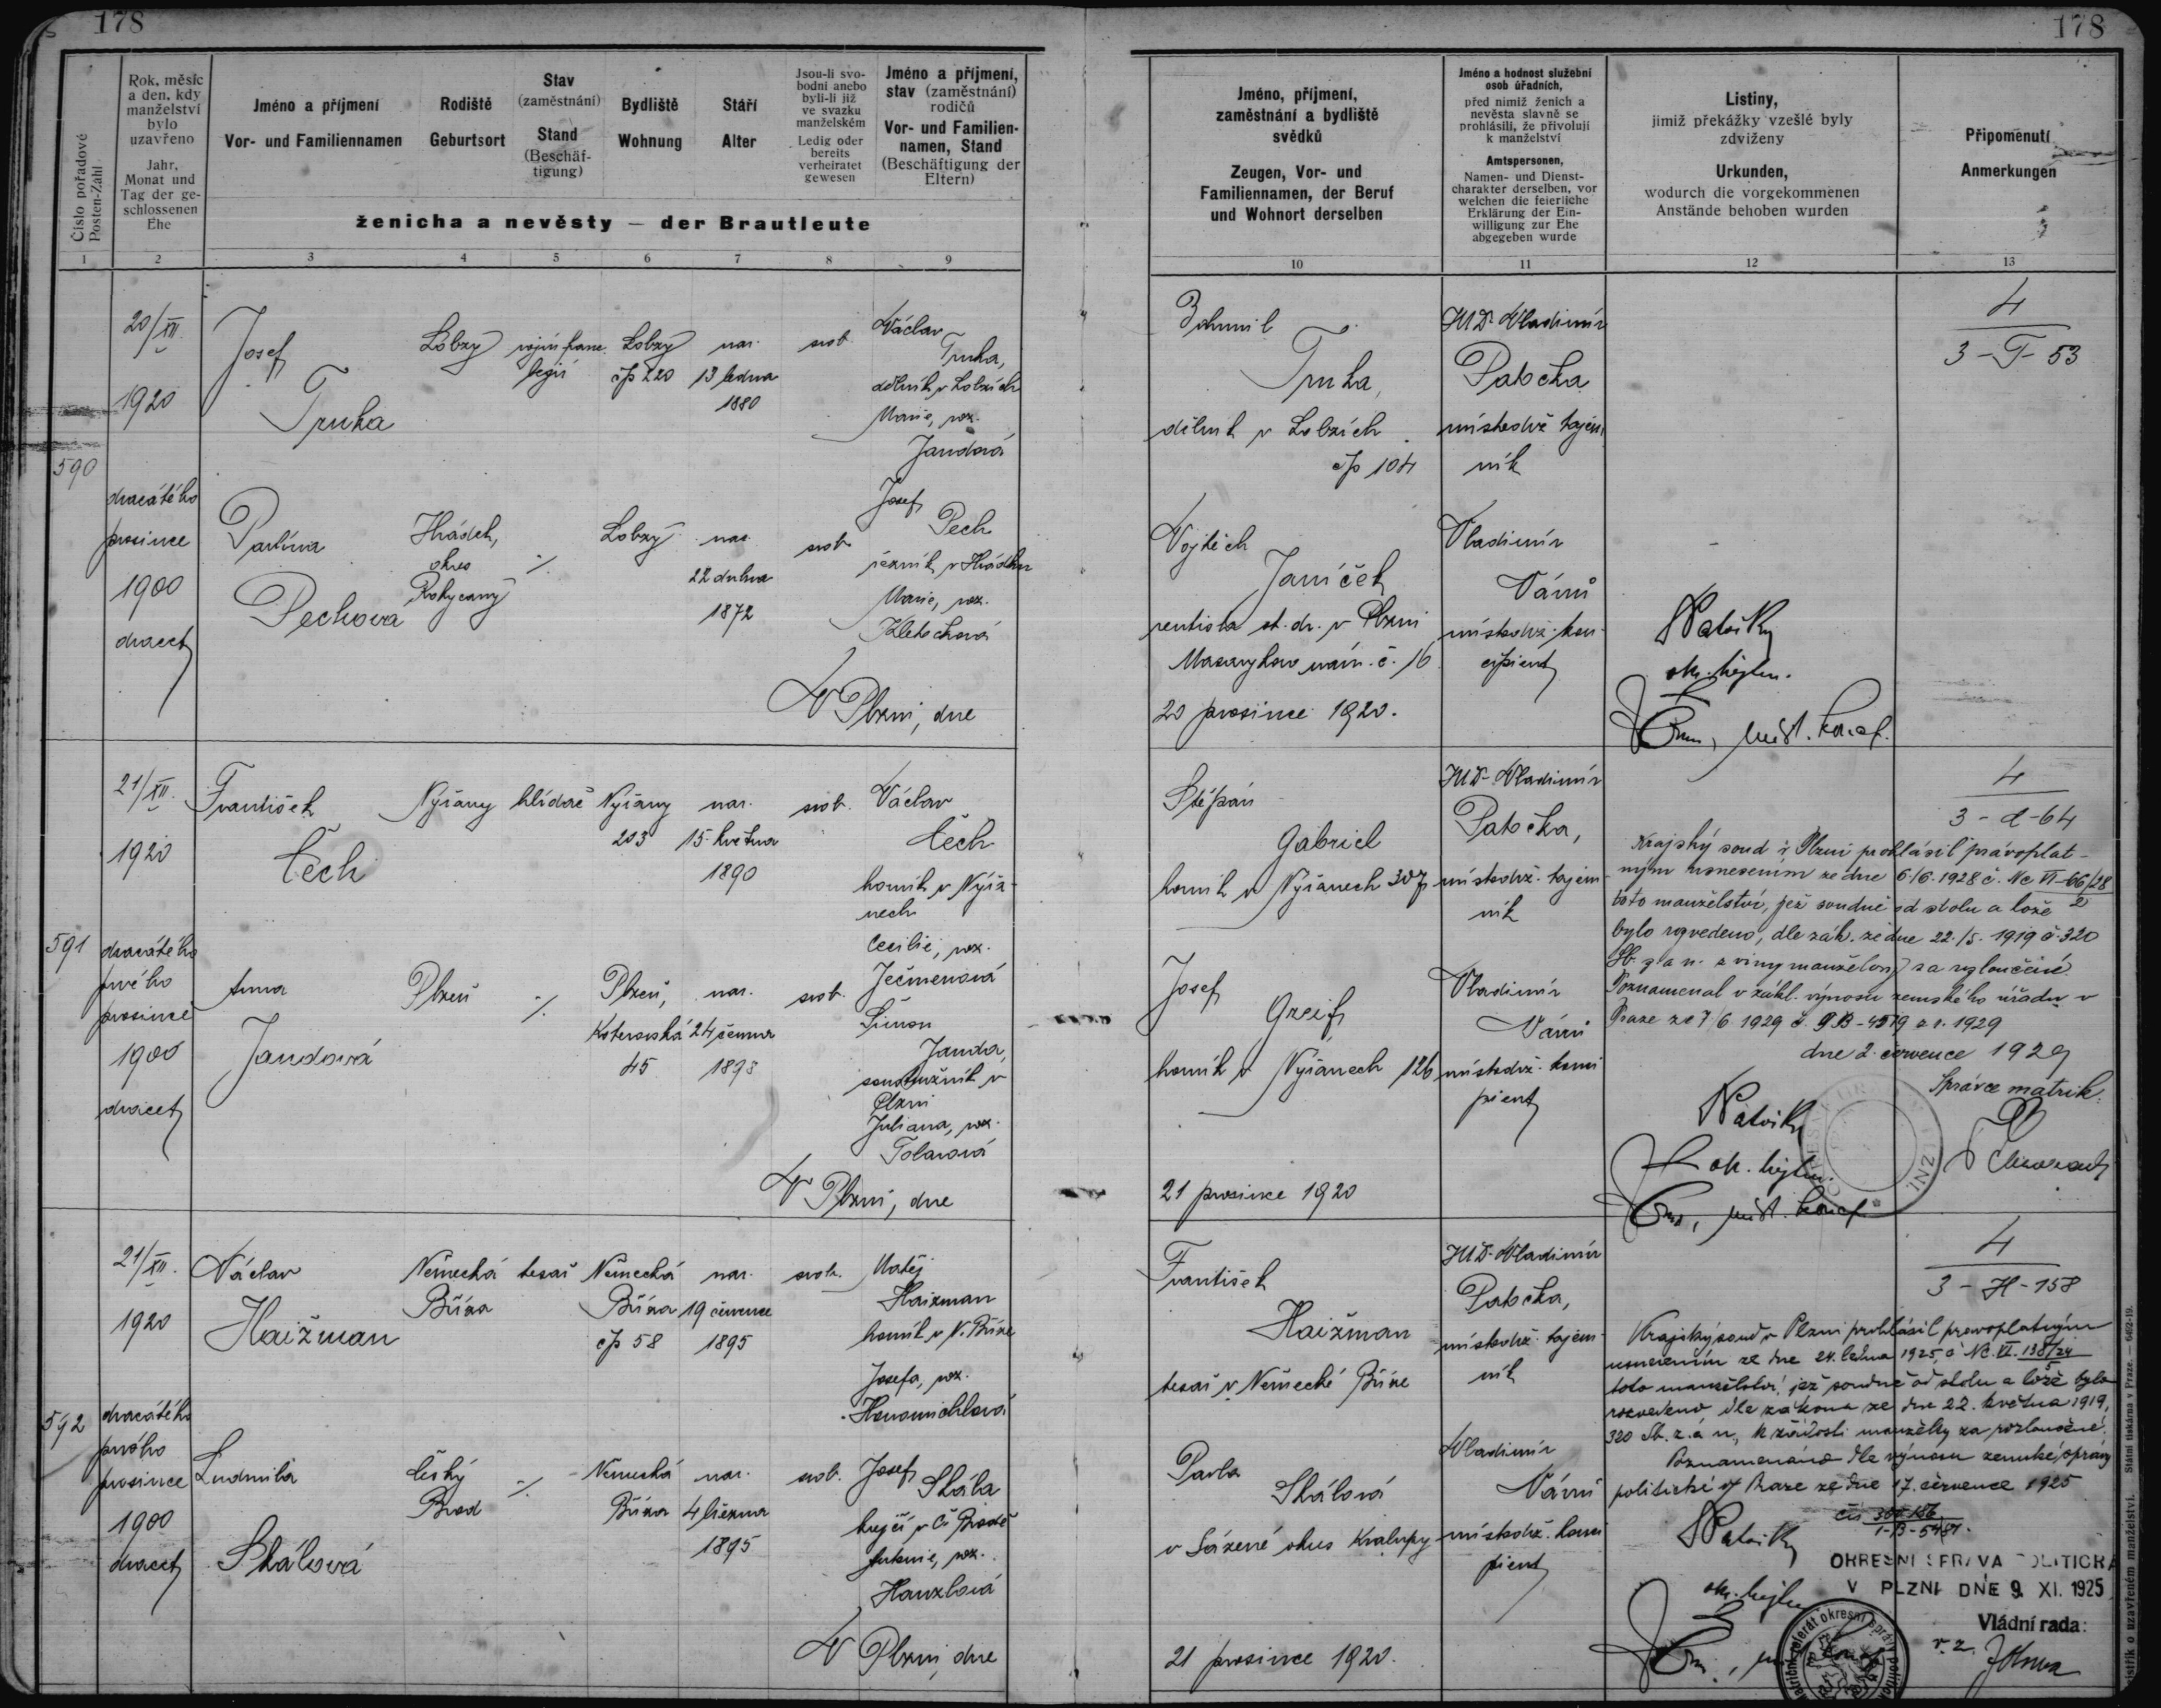 178
178
Číslo pořadové
Posten-Zahl
Rok, měsíc
a den, kdy
manželství
bylo
uzavřeno
Jahr,
Monat und
Tag der ge-
schlossenen
Ehe
Jméno a příjmení
Vor- und Familiennamen
Rodiště
Geburtsort
Stav
(zaměstnání)
Stand
(Beschäf-
tigung)
Bydliště
Wohnung
Stáří
Alter
Jsou-li svo-
bodni anebo
byli-li již
ve svazku
manželském
Ledig oder
bereits
verheiratet
gewesen
Jméno a příjmení,
stav (zaměstnání)
rodičů
Vor- und Familien-
namen, Stand
(Beschäftigung der
Eltern)
ženicha a nevěsty — der Brautleute
1 2 3 4 5 6 7 8 9
Jméno, příjmení,
zaměstnání a bydliště
svědků
Zeugen, Vor- und
Familiennamen, der Beruf
und Wohnort derselben
Jméno a hodnost služební
osob úřadních,
před nimiž ženich a
nevěsta slavně se
prohlásili, že přivolují
k manželství
Amtspersonen,
Namen- und Dienst-
charakter derselben, vor
welchen die feierliche
Erklärung der Ein-
willigung zur Ehe
abgegeben wurde
Listiny,
jimiž překážky vzešlé byly
zdviženy
Urkunden,
wodurch die vorgekommenen
Anstände behoben wurden
Připomenutí
Anmerkungen
10 11 12 13
590
20/XII.
1920
dvacátého
prosince
1900
dvacet
Josef
Truka
Lobzy
vojín franc.
legií
Lobzy
čp 220
nar.
13 ledna
1880
svob.
Václav
Truka,
dělník v Lobzích
Marie, roz.
Jandová
Pavlína
Pechová
Hrádek,
okres
Rokycany
·/.
Lobzy
nar.
22 dubna
1872
svob.
Josef
Pech
řezník v Hrádku
Marie, roz.
Kletečková
V Plzni, dne
Bohumil
Truka,
dělník v Lobzích
čp 104
Vojtěch
Janíček
rentista st. dr. v Plzni
Masarykovo nám. č. 16
20 prosince 1920.
JUDr. Vladimír
Patočka
místodrž. tajem-
ník
Vladimír
Vámů
místodrž. kon-
cipient
míst. konc.
4
3 - T - 53
591
21/XII.
1920
dvacátého
prvého
prosince
1900
dvacet
František
Čech
Nýřany
hlídač
Nýřany
203
nar.
15. května
1890
svob.
Václav
Čech
horník v Nýřa-
nech
Cecilie, roz.
Ječmenová
Anna
Jandová
Plzeň
·/.
Plzeň,
Koterovská
45
nar.
24 června
1893
svob.
Šimon
Janda,
soustružník v
Plzni
Juliana, roz.
Tolarová
V Plzni, dne
Štěpán
Gabriel
horník v Nýřanech 307
Josef
Greif
horník v Nýřanech 126
21 prosince 1920
JUDr. Vladimír
Patočka,
místodrž. tajem-
ník
Vladimír
Vámů
místodrž. konci
pient
4
3 - Č - 64
Krajský soud v Plzni prohlásil právoplat-
ným usnesením ze dne 6./6. 1928 č. Nc VI-66/28
2
toto manželství, jež soudně od stolu a lože
bylo rozvedeno, dle zák. ze dne 22./5. 1919 č. 320
Sb. z. a n. z viny manželovy za rozloučené.
Poznamenal v zákl. výnosu zemského úřadu v
Praze ze 7/6 1929 č. 9B-4579 z r. 1929
dne 2. července 1929
Správce matrik:
míst. konc.
592
21/XII.
1920
dvacátého
prvého
prosince
1900
dvacet
Václav
Haižman
Německá
Bříza
tesař
Německá
Bříza
čp 58
nar.
19 července
1895
svob.
Matěj
Haizman
horník v N. Bříze
Josefa, roz.
Honomichlová
Ludmila
Skálová
Český
Brod
·/.
Německá
Bříza
nar.
4 března
1895
svob.
Josef
Skála
krejčí v Č. Brodě
Antonie, roz.
Hanzlová
V Plzni, dne
František
Haižman
tesař v Německé Bříze
Pavla
Skálová
v Sázené okres Kralupy
21 prosince 1920.
JUDr. Vladimír
Patočka,
místodrž. tajem-
ník
Vladimír
Vámů
místodrž. konci
pient
4
3 - H - 158
Krajský soud v Plzni prohlásil pravoplatným
usnesením ze dne 24. ledna 1925, č. Nc. VI. 138/24
5
toto manželství, jež soudně od stolu a lože bylo
rozvedeno dle zákona ze dne 22. května 1919,
320 Sb. z. a n., k žádosti manželky za rozloučené.
Poznamenáno dle výnosu zemské správy
politické v Praze ze dne 17. července 1925
OKRESNÍ SPRÁVA POLITICKÁ
V PLZNI DNE 9. XI. 1925
Vládní rada:
v. z.
Státní tiskárna v Praze. — 6402-19.